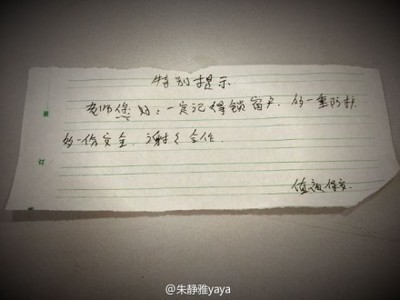 特别提示
老师您好：一定记得锁窗户，多一重防护
多一份安全，谢谢合作
值班保安
装
订
@朱静雅yaya